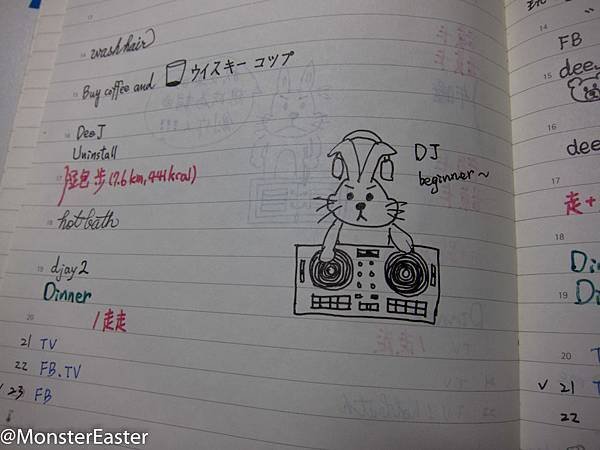 13
14
wash hair
15 Buy coffee and ウイスキー コップ
16 Dee J
Uninstall
17
步 (7.6 km, 441 kcal)
18 hot bath
19 djay2
Dinner
20
走走
21 TV
22 FB.TV
✓ 23 FB
DJ
beginner~
FB
15 dee
16
dee
17
走+
18
Di
19 Di
20 T
✓ 21 T
22
@MonsterEaster